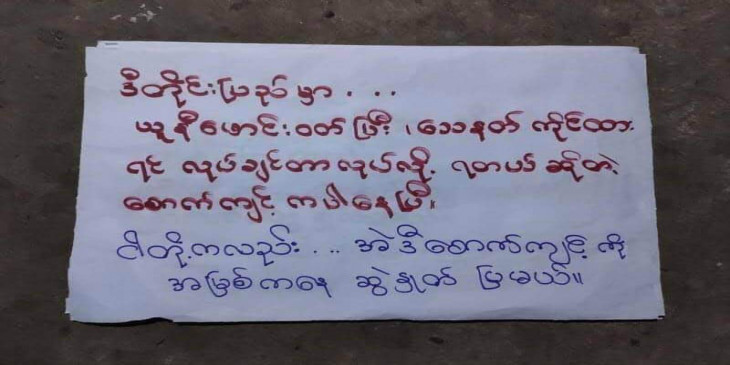 ဒီတိုင်းပြည်မှာ . . .
ယူနီဖောင်းဝတ်ပြီး ၊ သေနတ် ကိုင်ထား
ရင် လုပ်ချင်တာလုပ်လို့ ရတယ် ဆိုတဲ့
စောက်ကျင့် ကပါနေပြီ။
ငါတို့ကလည်း . . . အဲဒီစောက်ကျင့် ကို
အမြစ်ကနေ ဆွဲနှုတ် ပြမယ်။